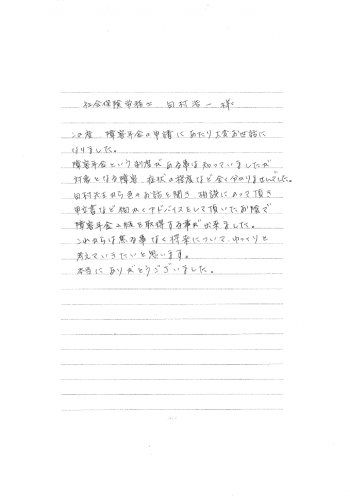 社会保険労務士 田村浩一 様
この度、障害年金の申請にあたり大変お世話に
なりました。
障害年金という制度がある事は知っていましたが
対象となる障害、症状の程度など全く分かりませんでした。
田村先生から色々お話を聞き、相談にのって頂き
申立書など細かくアドバイスをして頂いたお陰で
障害年金2級を取得する事が出来ました。
これからは焦る事なく将来について、ゆっくりと
考えていきたいと思います。
本当にありがとうございました。